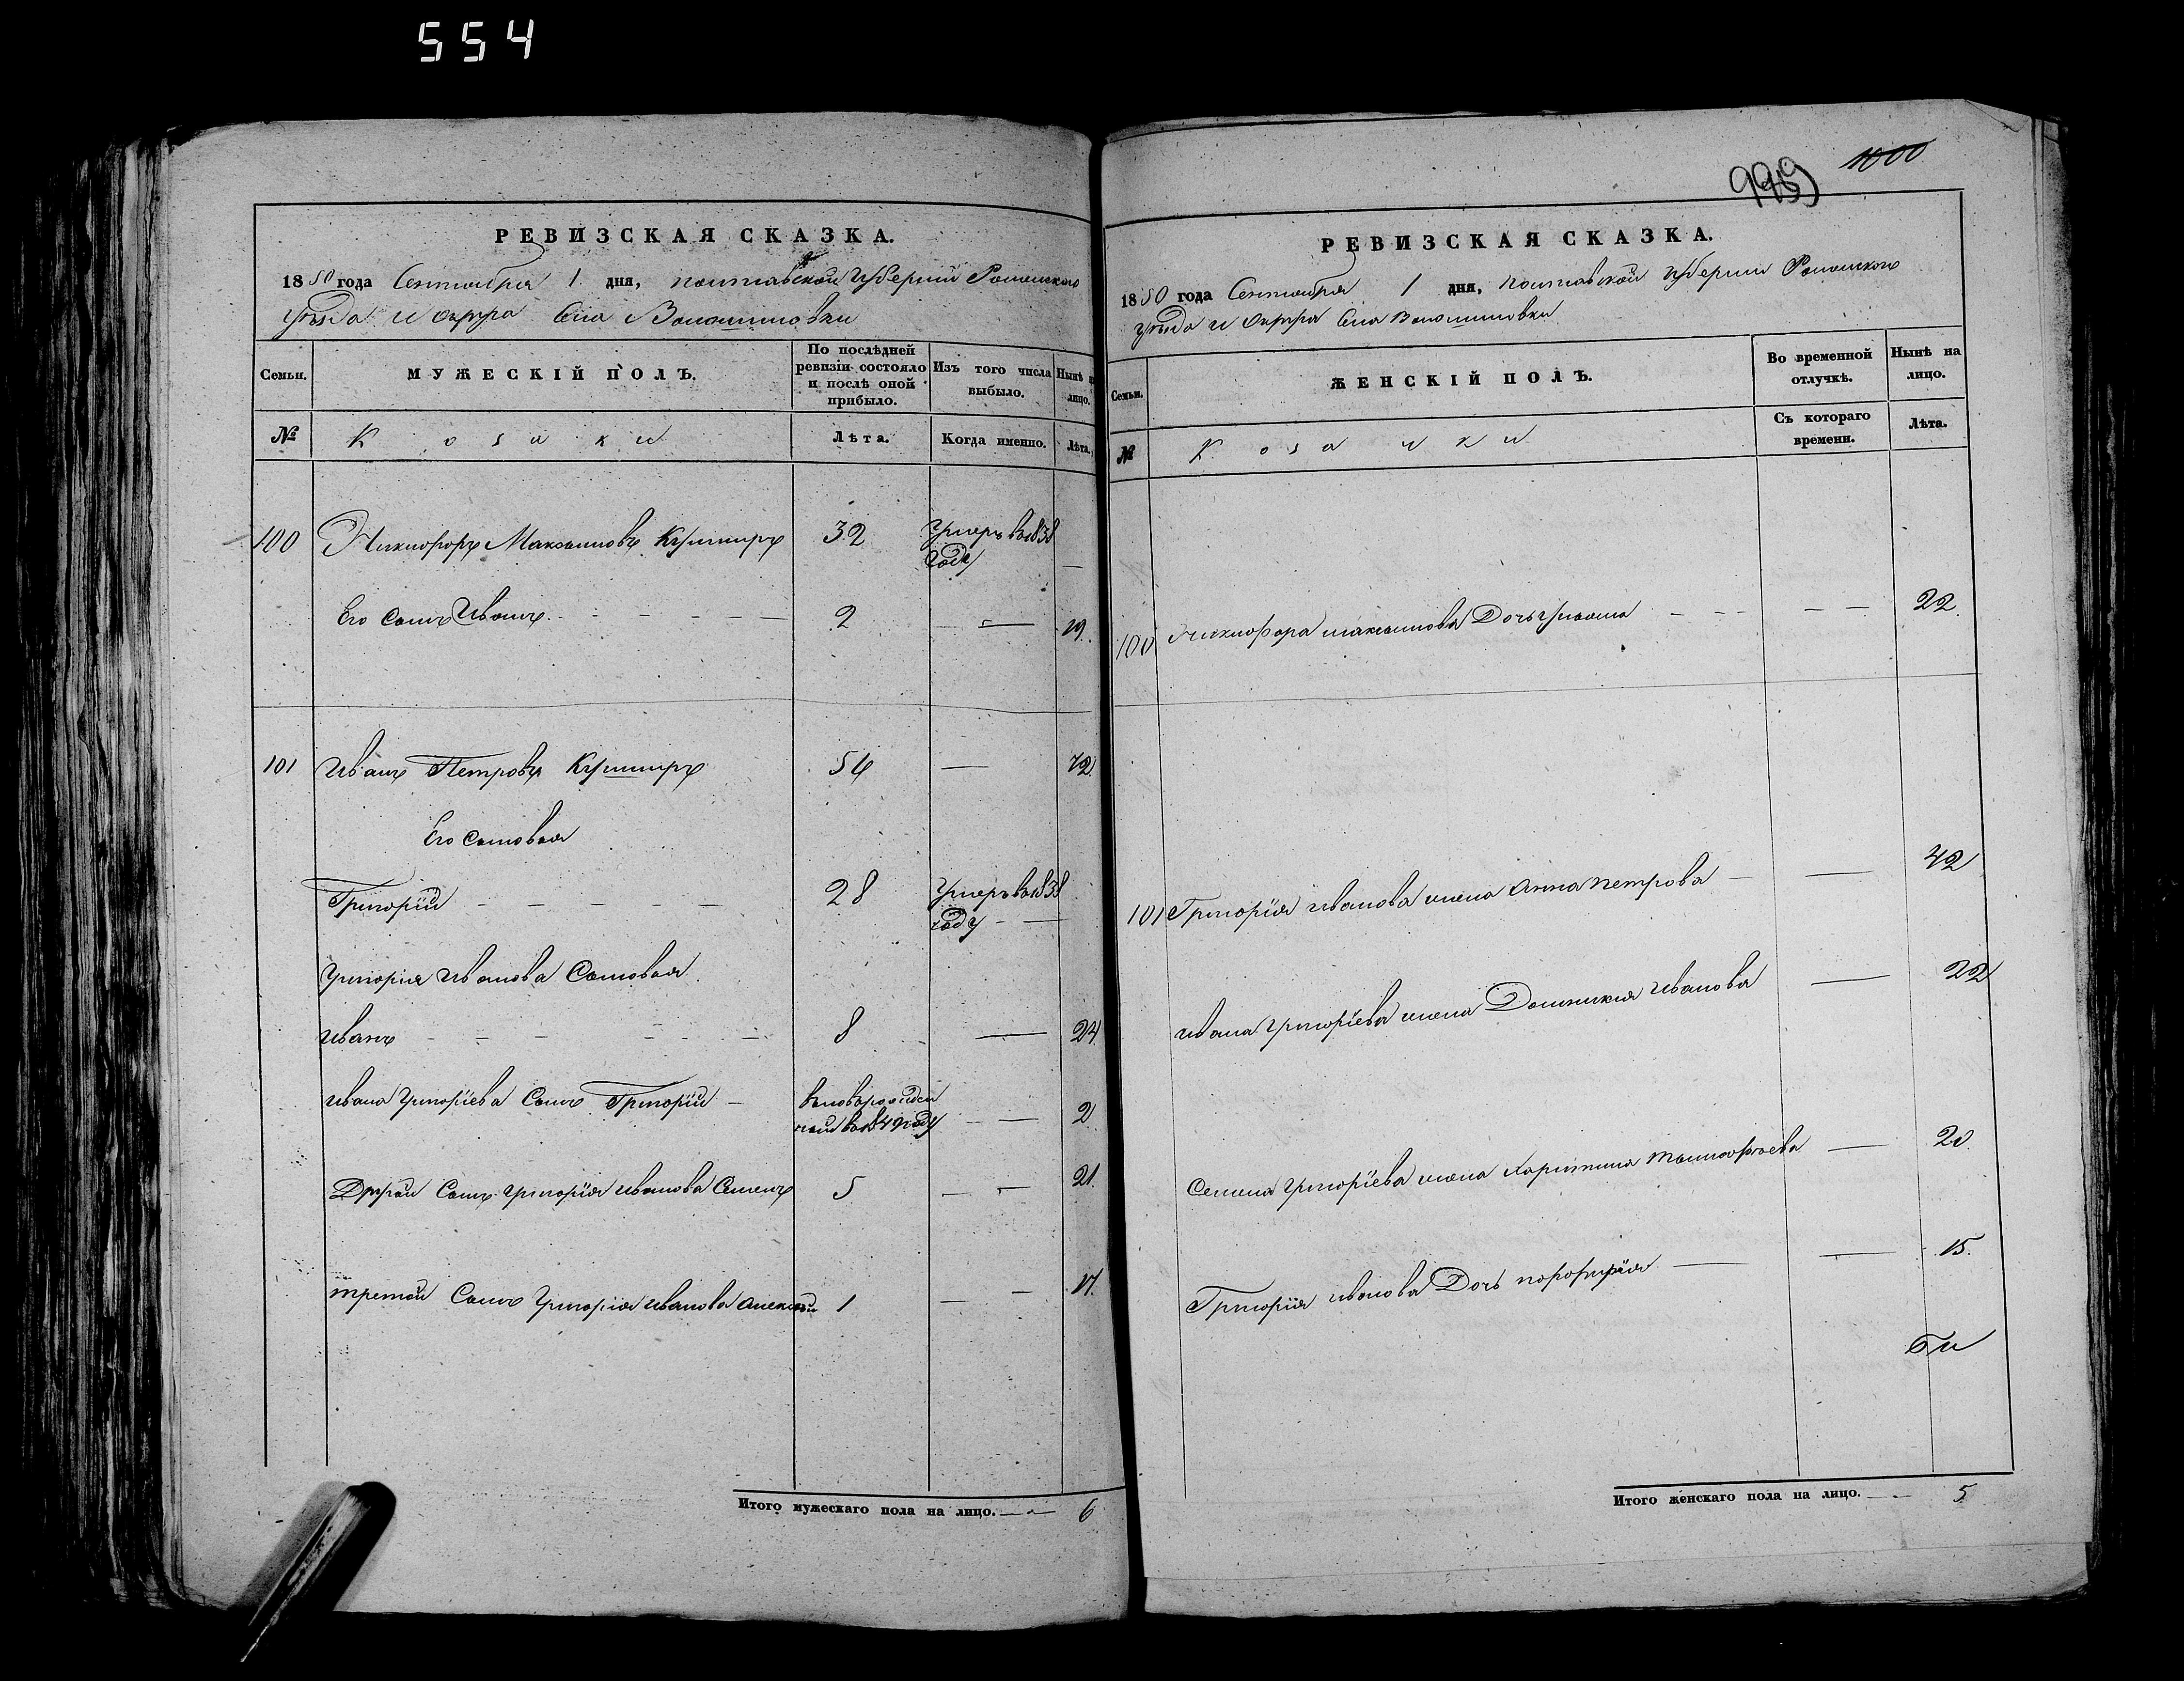 554
РЕВИЗСКАЯ СКАЗКА.
1850 года Сентября 1 дня, полтавской Губерніи Роменского
уѣзда и округа Села Волошиновки
Семьи. МУЖЕСКІЙ ПОЛЪ. По послѣдней ревизіи состояло и послѣ оной прибыло. Изъ того числа выбыло. Нынѣ на лицо.
№ Козаки Лѣта. Когда именно. Лѣта.
100 Никифоръ Максимовъ Кушниръ 32 Умеръ въ 1838
году —
Его Сынъ Иванъ 2 — 19.
101 Иванъ Петровъ Кушниръ 56 — 72.
Его Сыновья
Григорій 28 Умеръ въ 1838
году —
Григорія Иванова Сыновья
Иванъ 8 — 24.
Ивана Григоріева Сынъ Григорій — вновьрожден
ный въ 1849 году — 2
Другой Сынъ Григорія Иванова Семенъ 5 — 21.
третій Сынъ Григорія Иванова Алексѣй 1 — 17.
Итого мужескаго пола на лицо. — 6
999 1000
РЕВИЗСКАЯ СКАЗКА.
1850 года Сентября 1 дня, полтавской губерніи Роменского
уѣзда и округа Села Волошиновки
Семьи. ЖЕНСКІЙ ПОЛЪ. Во временной отлучкѣ. Нынѣ на лицо.
№ Козачки Съ котораго времени. Лѣта.
100 Никифора максимова Дочь Ульяна — — 22.
101 Григорія иванова жена Анна петрова — — 42
ивана Григоріева жена Домникия Иванова — 22
Семена Григоріева жена Харитина Тимофеева — 20.
Григорія иванова Дочь порфирія — — 15.
Итого женскаго пола на лицо. — 5